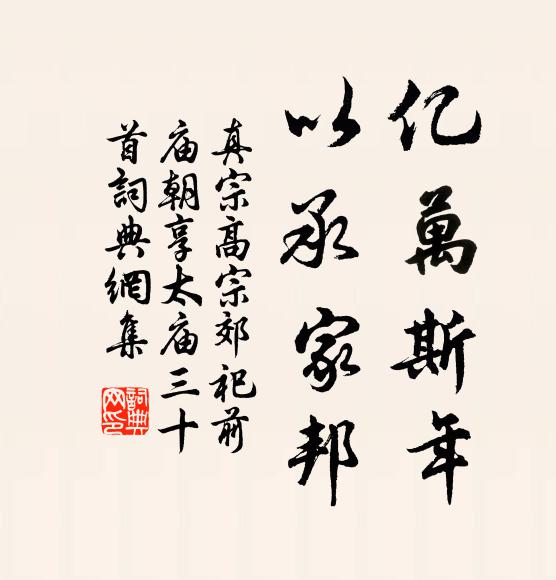 亿萬斯年
以承家邦
真宗高宗郊祀前
庙朝享太庙三十
首詞典網集
詞典网印